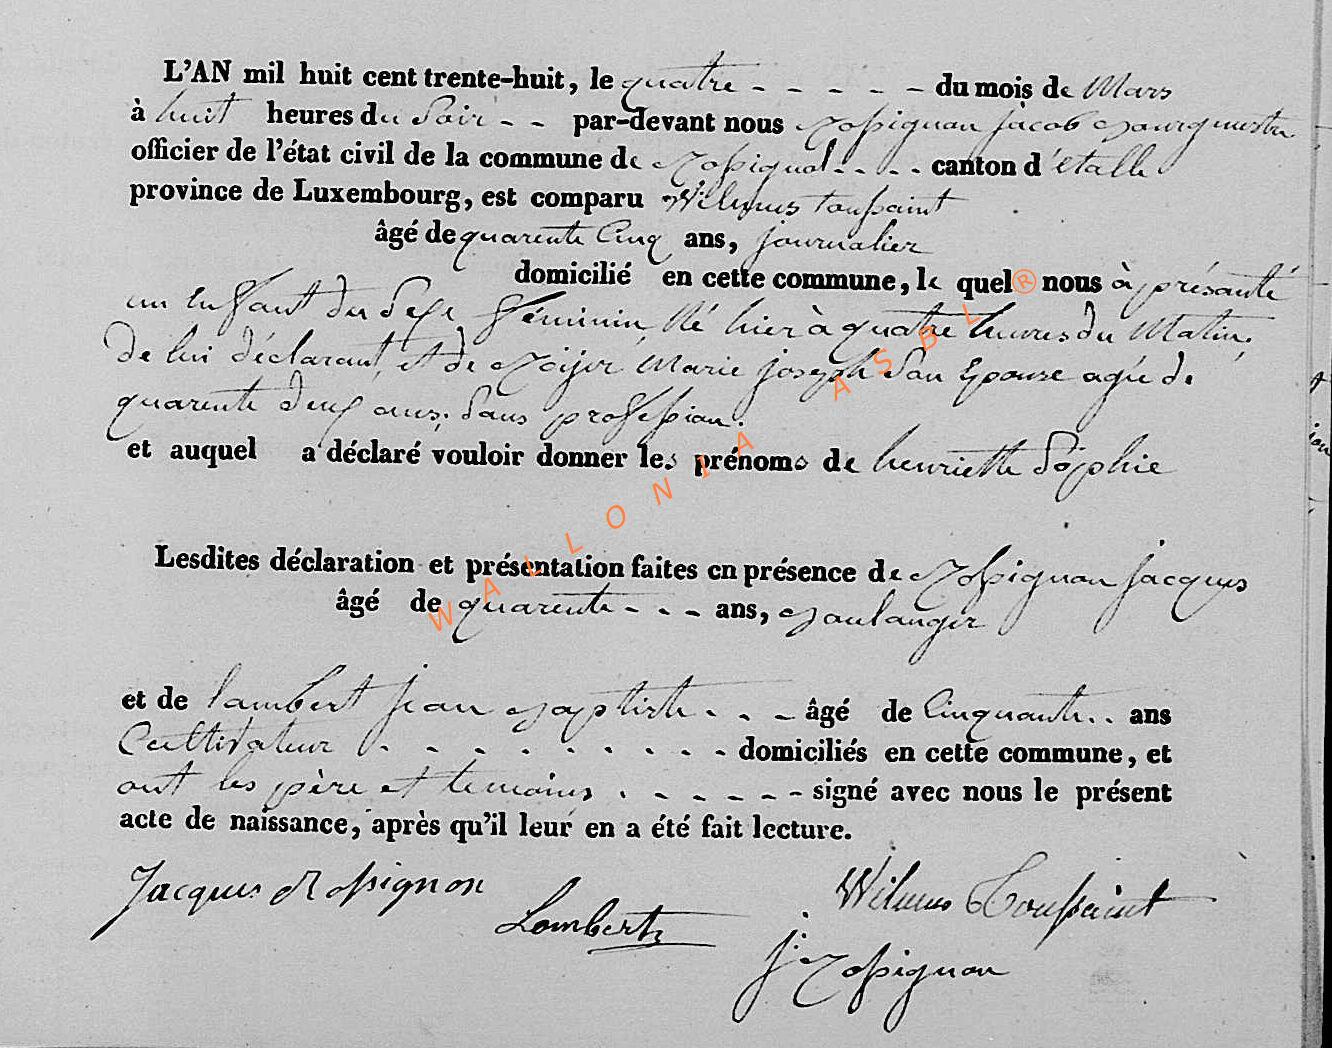 L'AN mil huit cent trente-huit, le quatre - - - - - du mois de Mars
à huit heures du Soir - - par-devant nous Rossignon jacob Bourgmestre
officier de l'état civil de la commune de Rossignol - - - canton d'étalle
province de Luxembourg, est comparu Wilmus toussaint
âgé de quarente Cinq ans, journalier
domicilié en cette commune, le quel nous à présanté
un Enfant du Sexe féminin, Né hier à quatre heures du Matin,
de lui déclarant, et de Marie joseph Son Epouse agée de
quarente deux ans, Sans profession.
et auquel a déclaré vouloir donner les prénoms de henriette Sophie
Lesdites déclaration et présentation faites en présence de Rossignon jacques
âgé de quarente - - - ans, Boulanger
et de lambert jean Baptiste - - - âgé de Cinquante - - ans
Cultivateur - - - - - - - - - domiciliés en cette commune, et
ont les père et temoins - - - - - - signé avec nous le présent
acte de naissance, après qu'il leur en a été fait lecture.
Jacques Rossignon
Lambert
Wilmus Toussaint
j. Rossignon
WALLONIA ASBL ®